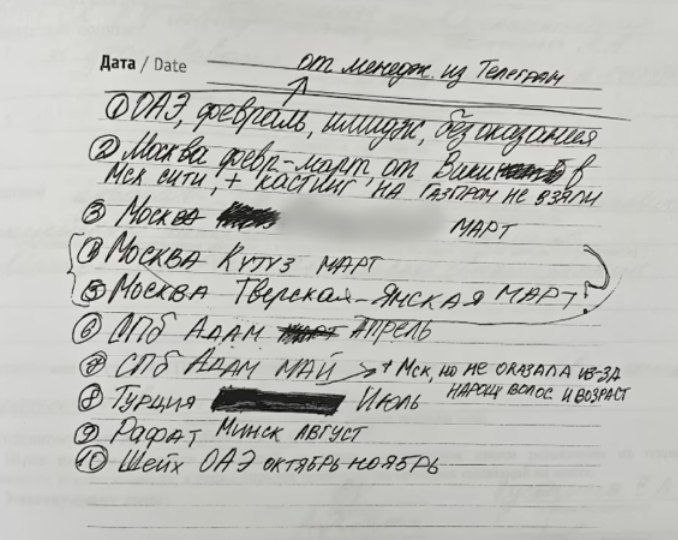 Дата / Date
от менедж. из Телеграм
① ОАЭ, февраль, имидж, без оказания
② Москва февр-март, от Вики в
Мск сити, + кастинг на Газпром не взяли
③ Москва март
④ Москва Кутуз март
⑤ Москва Тверская-Янская март ?
⑥ СПб Адам апрель
⑦ СПб Адам май → + Мск, но не оказала из-за
нарощ волос и возраст
⑧ Турция Июль
⑨ Рафат Минск август
⑩ Шейх ОАЭ октябрь ноябрь